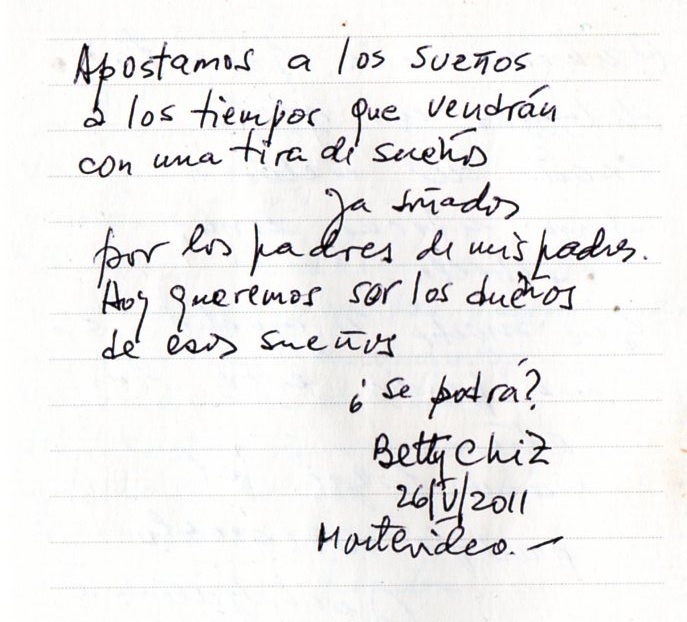 Apostamos a los sueños
a los tiempos que vendrán
con una tira de sueños
ya soñados
por los padres de mis padres.
Hoy queremos ser los dueños
de esos sueños
¿se podrá?
Betty Chiz
26/V/2011
Montevideo.—